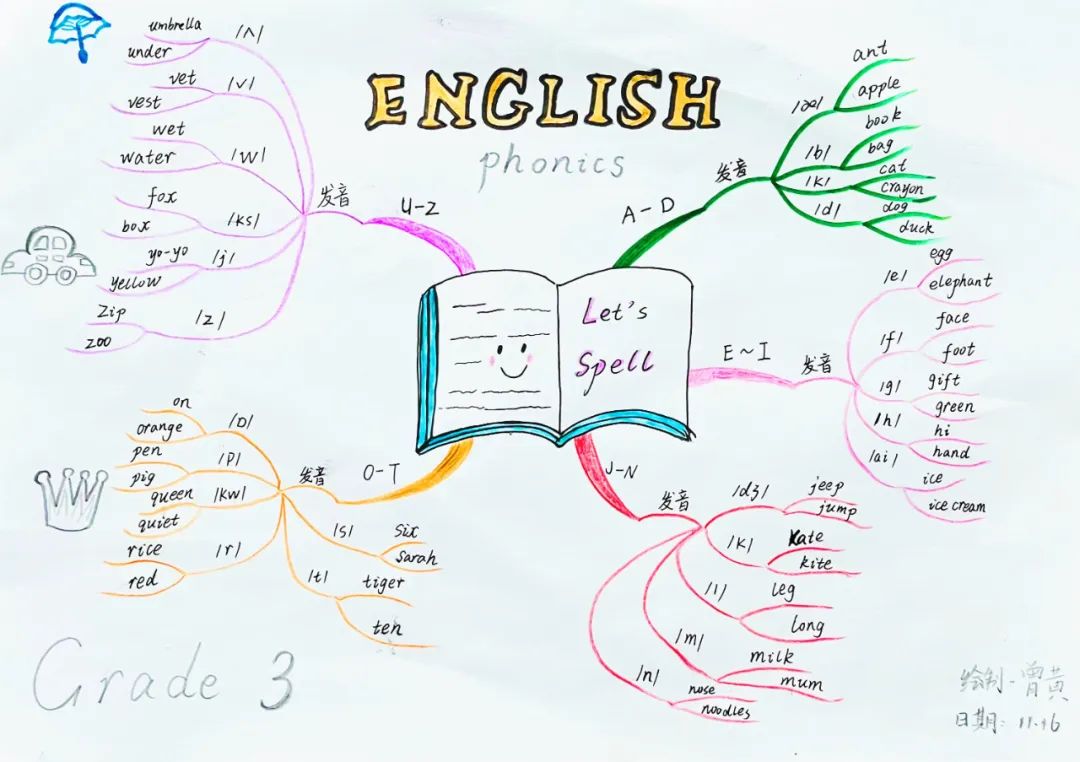 ENGLISH
phonics
Let's
Spell
A-D
发音
/æ/
ant
apple
/b/
book
bag
/k/
cat
crayon
/d/
dog
duck
E~I
发音
/e/
egg
elephant
/f/
face
foot
/g/
gift
green
/h/
hi
hand
/ai/
ice
ice cream
J-N
发音
/dʒ/
jeep
jump
/k/
Kate
kite
/l/
leg
long
/m/
milk
mum
/n/
nose
noodles
O-T
发音
/ɒ/
on
orange
/p/
pen
pig
/kw/
queen
quiet
/r/
rice
red
/s/
six
Sarah
/t/
tiger
ten
U-Z
发音
/ʌ/
umbrella
under
/v/
vet
vest
/w/
wet
water
/ks/
fox
box
/j/
yo-yo
yellow
/z/
zip
zoo
Grade 3
绘制-曾黄
日期: 11.16